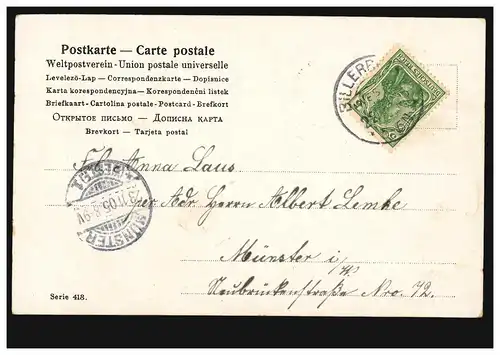 Postkarte — Carte postale
Weltpostverein - Union postale universelle
Levelező-Lap — Correspondenzkarte — Dopisnice
Karta korespondencyjna — Korespondenční listek
Briefkaart - Cartolina postale - Postcard - Brefkort
Открытое письмо — Дописна карта
Brevkort — Tarjeta postal
BILLERB
Anna Laus
per Adr Herrn Albert Lemke
MÜNSTER
05
Münster i/W.
Neubrückenstraße Nro. 72.
Serie 418.